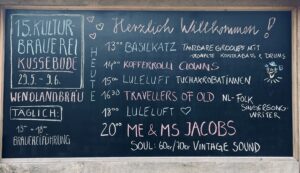 15. KULTUR
BRAUEREI
KUSSEBODE
29.5. - 9.6.
WENDLANDBRÄU
TÄGLICH:
BRAUEREIFÜHRUNG
HEUTE
Herzlich Willkommen!
13°° BASILKATZ TANZBARE GROOVES MIT
KONTRABASS & DRUMS
14°° KOFFERKROLL CLOWNS
15°° LULELUFT TUCHAKROBATINNEN
16³⁰ TRAVELLERS OF OLD NL-FOLK
SINGERSONG-
WRITER
18°° LULELUFT ♡
20°° ME & MS JACOBS
SOUL: 60er/70er VINTAGE SOUND